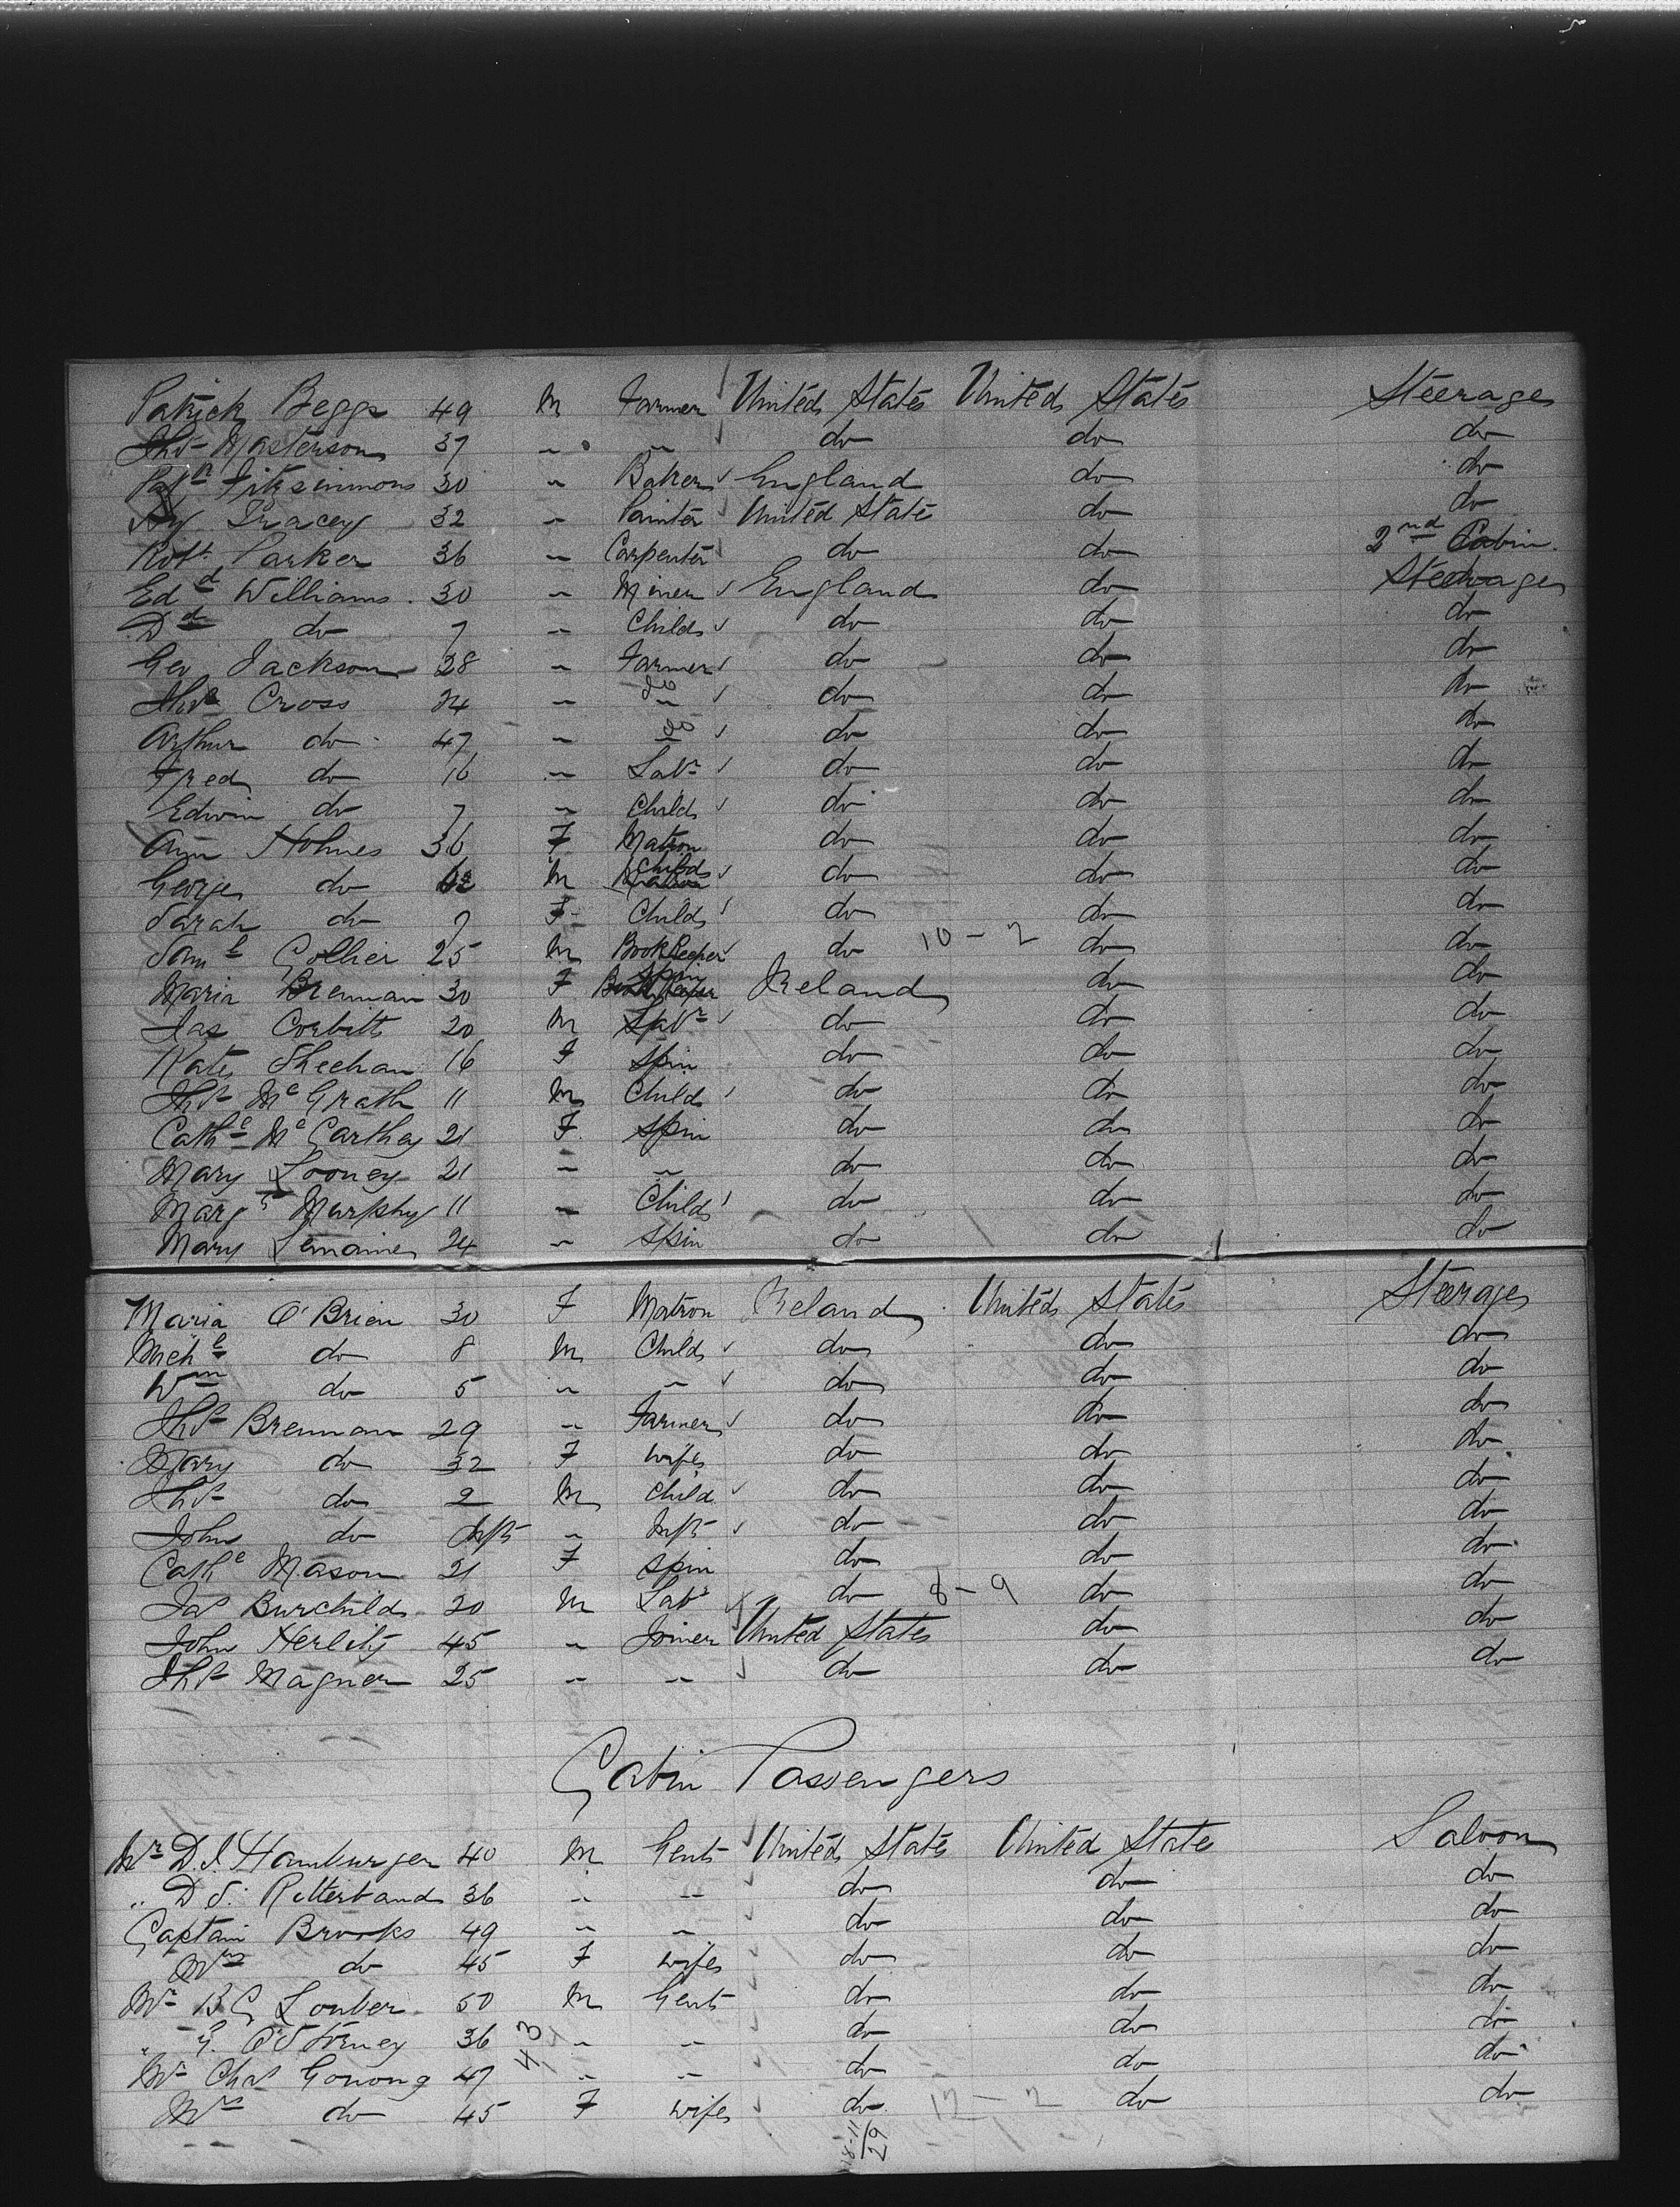 Patrick Beggs 49 M Farmer United States United States Steerage
Thos Masterson 37 " " do do do
Patk Fitzsimmons 30 " Baker England do do
Hy Tracey 32 " Painter United State do do
Robt Parker 36 " Carpenter do do 2nd Cabin
Edd Williams 30 " Miner England do Steerage
Dd do 7 " Child do do do
Geo Jackson 28 " Farmer do do do
Thos Cross 24 " do do do do
Arthur do 47 " do do do do
Fred do 16 " Labr do do do
Edwin do 7 " Child do do do
Ann Holmes 36 F Matron do do do
George do M Child do do do
Sarah do 7 F Child do do do
Saml Collier 25 M Bookkeeper do 10-2 do do
Maria Brennan 30 F Spin Ireland do do
Jas Corbitt 20 M Labr do do do
Kate Sheehan 16 F Spin do do do
Thos McGrath 11 M Child do do do
Cathe McCarthey 21 F Spin do do do
Mary Looney 21 " " do do do
Margt Murphy 11 " Child do do do
Mary Lemaine 24 " Spin do do do
Maria O'Brien 30 F Matron Ireland United States Steerage
Michl do 8 M Child do do do
Wm do 5 " " do do do
Thos Brennan 29 " Farmer do do do
Mary do 32 F wife do do do
Thos do 2 M Child do do do
John do Inft " Inft do do do
Cathe Mason 21 F Spin do do do
Jas Burchild 20 M Labr do 8-9 do do
John Herlity 45 " Joiner United States do do
Thos Magner 25 " " do do do
Cabin Passengers
Mr D.I. Hamburger 40 M Gent United States United State Saloon
" D.S. Ritterband 36 " " do do do
Captain Brooks 49 " " do do do
Mrs do 45 F wife do do do
Mr B C Louber 50 M Gent do do do
" G. 36 " " do do do
Mr Chas Gonong 47 " " do do do
Mrs do 45 F wife do 12-2 do do
43
18-11/29